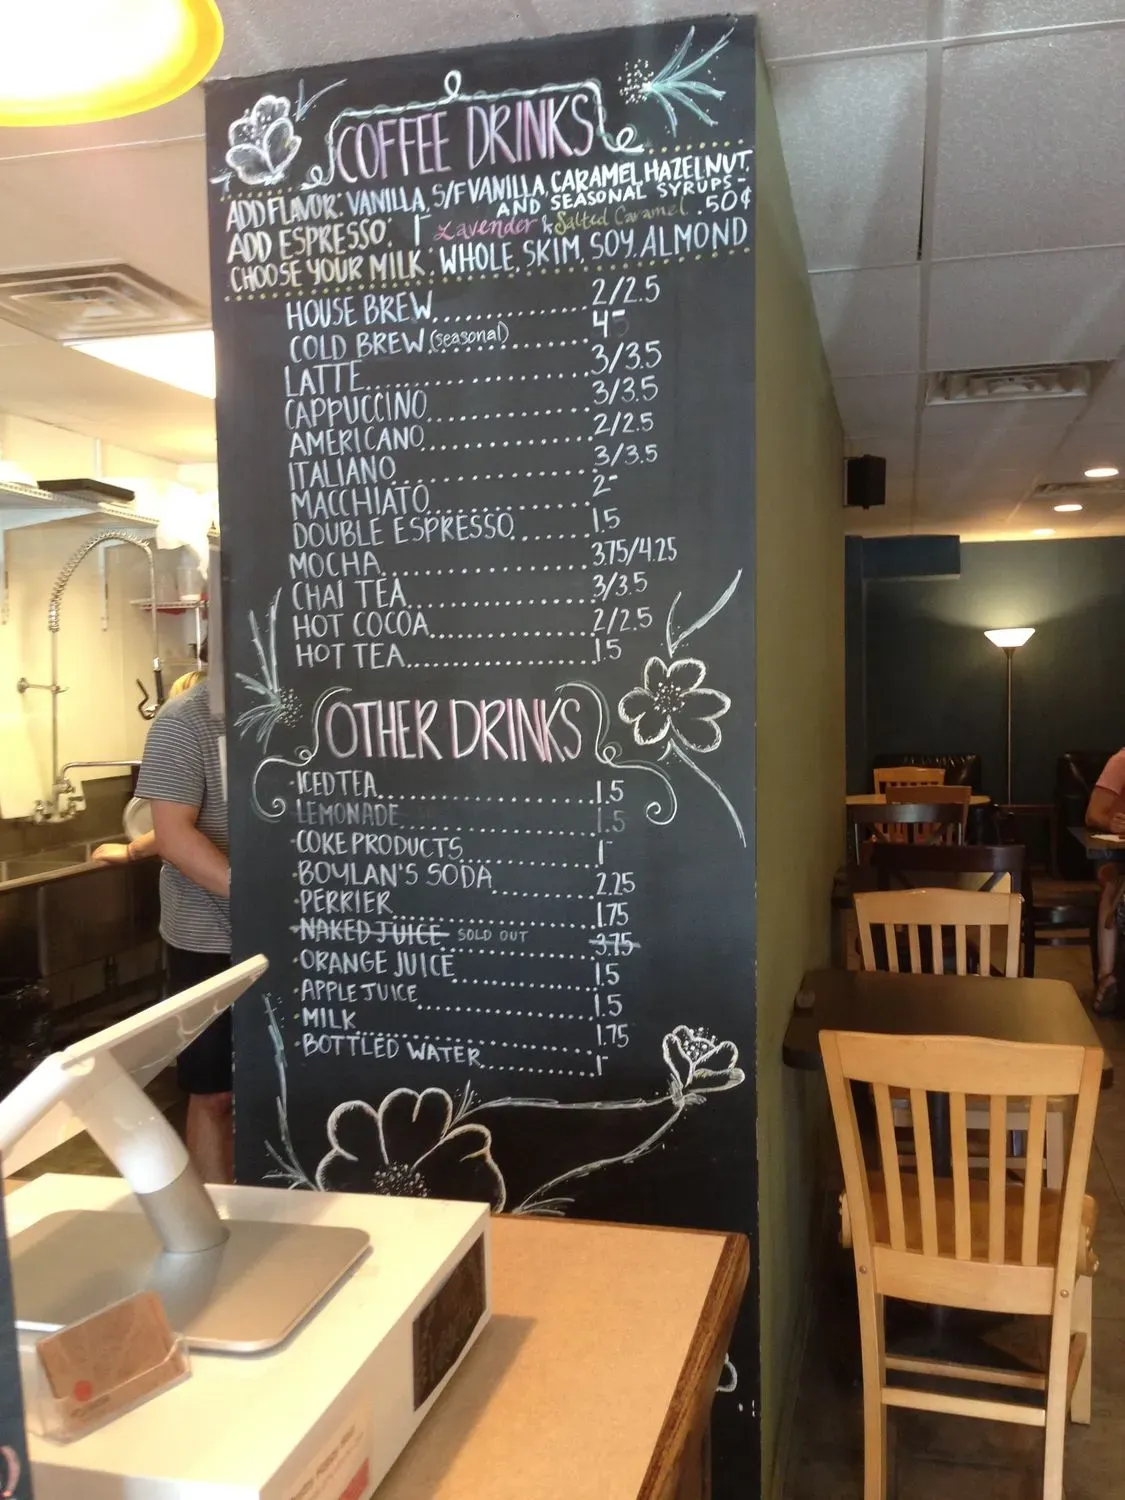 COFFEE DRINKS
ADD FLAVOR: VANILLA, S/F VANILLA, CARAMEL, HAZELNUT,
AND SEASONAL SYRUPS-
Lavender & Salted Caramel .50¢
ADD ESPRESSO: 1-
CHOOSE YOUR MILK: WHOLE, SKIM, SOY, ALMOND
HOUSE BREW..............2/2.5
COLD BREW (seasonal)..............4-
LATTE..............3/3.5
CAPPUCCINO..............3/3.5
AMERICANO..............2/2.5
ITALIANO..............3/3.5
MACCHIATO..............2-
DOUBLE ESPRESSO..............1.5
MOCHA..............3.75/4.25
CHAI TEA..............3/3.5
HOT COCOA..............2/2.5
HOT TEA..............1.5
OTHER DRINKS
·ICED TEA..............1.5
LEMONADE..............1.5
·COKE PRODUCTS..............1-
·BOYLAN'S SODA..............2.25
·PERRIER..............1.75
·NAKED JUICE SOLD OUT..............3.75
·ORANGE JUICE..............1.5
·APPLE JUICE..............1.5
·MILK..............1.75
·BOTTLED WATER..............1-